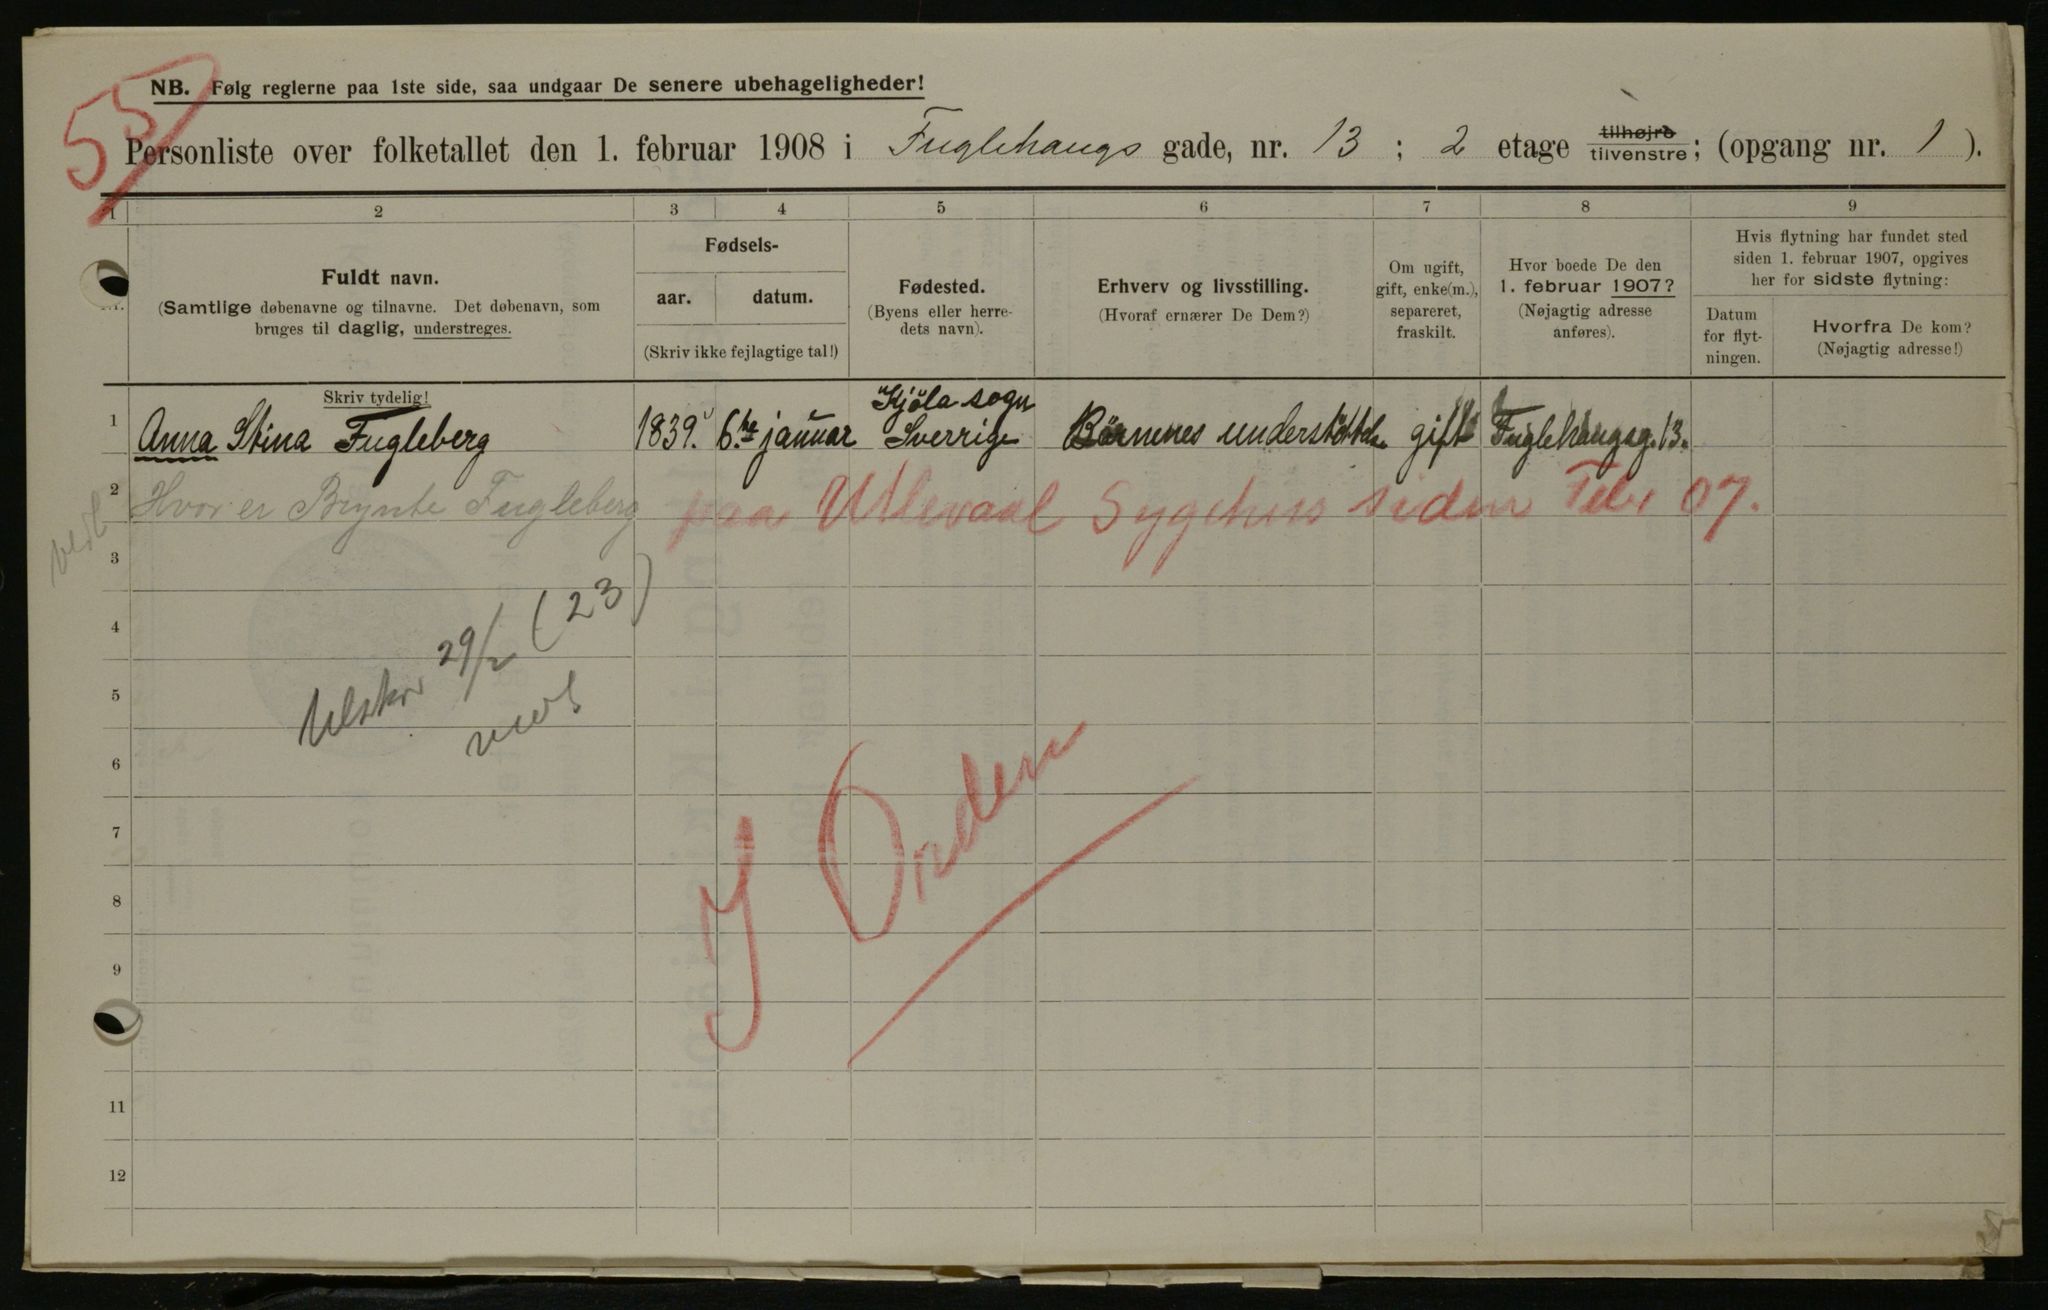 55
NB. Følg reglerne paa 1ste side, saa undgaar De senere ubehageligheder!
Personliste over folketallet den 1. februar 1908 i Fuglehaugs gade, nr. 13 ; 2 etage tilhøjre tilvenstre; (opgang nr. 1 ).
1 2 3 4 5 6 7 8 9
Fuldt navn.
(Samtlige døbenavne og tilnavne. Det døbenavn, som
bruges til daglig, understreges.
Fødsels-
aar. datum.
(Skriv ikke fejlagtige tal!)
Fødested.
(Byens eller herre-
dets navn).
Erhverv og livsstilling.
(Hvoraf ernærer De Dem?)
Om ugift,
gift, enke(m.),
separeret,
fraskilt.
Hvor boede De den
1. februar 1907?
(Nøjagtig adresse
anføres).
Hvis flytning har fundet sted
siden 1. februar 1907, opgives
her for sidste flytning:
Datum
for flyt-
ningen.
Hvorfra De kom?
(Nøjagtig adresse!)
Skriv tydelig!
Kjöla sogn
1 Anna Stina Fugleberg 1839. 6.te januar Sverrige Börnenes understöttelse gift Fuglehaugsg. 13.
2 Hvor er Brynte Fugleberg paa Ullevaal Sygehus siden Febr 07.
3
4
29/2 (23)
5
6
7
I Orden
8
9
11
12